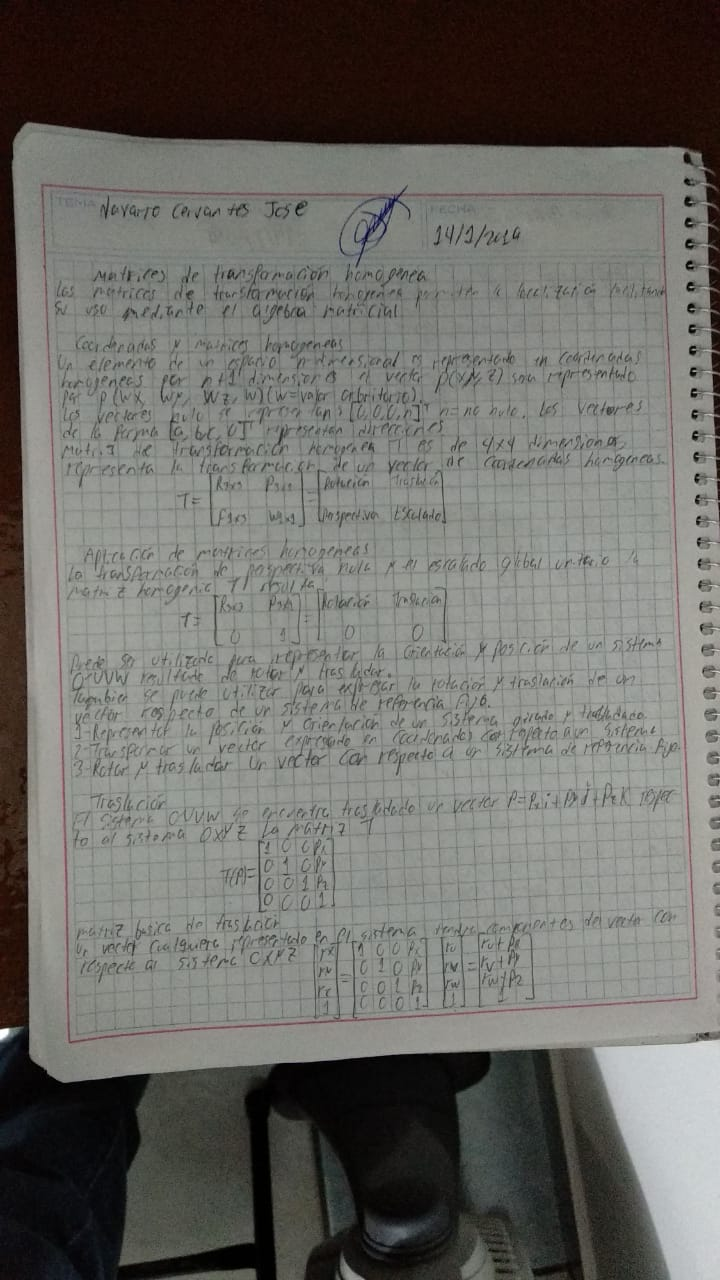 TEMA Navarro Cervantes Jose
FECHA
14/1/2019
Matrices de transformación homogenea
Las matrices de transformación homogenea permiten la localización facilitando
su uso mediante el algebra matricial
Coordenadas y matrices homogeneas
Un elemento de un espacio n-dimensional es representado en coordenadas
homogeneas por n+1 dimensiones el vector p(x,y,z) sera representado
por p(wx, wy, wz, w) (w=valor arbitrario).
Los vectores nulo se representan [0,0,0,n]ᵀ n=no nulo. Los vectores
de la forma [a,b,c,0]ᵀ representan direcciones
Matriz de transformación homogenea T es de 4x4 dimensiones,
representa la transformación de un vector de coordenadas homogeneas.
T= [R3x3 P3x1] = [Rotacion Traslacion]
[F1x3 W1x1] [Perspectiva Escalado]
Aplicación de matrices homogeneas
La transformación de perspectiva nula y el escalado global unitario la
matriz homogenea T resulta
T= [R3x3 P3x1] = [Rotación Traslacion]
[0 1] [0 0]
Puede ser utilizado para representar la orientación y posición de un sistema
O'UVW resultado de rotar y trasladar.
Tambien se puede utilizar para expresar la rotación y traslación de un
vector respecto de un sistema de referencia fijo.
1-Representar la posición y orientacion de un sistema girado y trasladado
2-Transformar un vector expresado en coordenadas con respecto a un sistema
3-Rotar y trasladar un vector con respecto a un sistema de referencia fijo.
Traslación
El sistema OUVW se encuentra trasladado un vector P=Pxi+Pyj+Pzk respec
to al sistema OXYZ La matriz T
T(P)= [1 0 0 Px]
[0 1 0 Py]
[0 0 1 Pz]
[0 0 0 1]
matriz basica de traslación
Un vector cualquiera representado en el sistema tendra componentes del vector con
respecto al sistema OXYZ [rx] = [1 0 0 Px] [ru] = [ru+Px]
[ry] [0 1 0 Py] [rv] [rv+Py]
[rz] [0 0 1 Pz] [rw] [rw+Pz]
[1] [0 0 0 1] [1] [1]